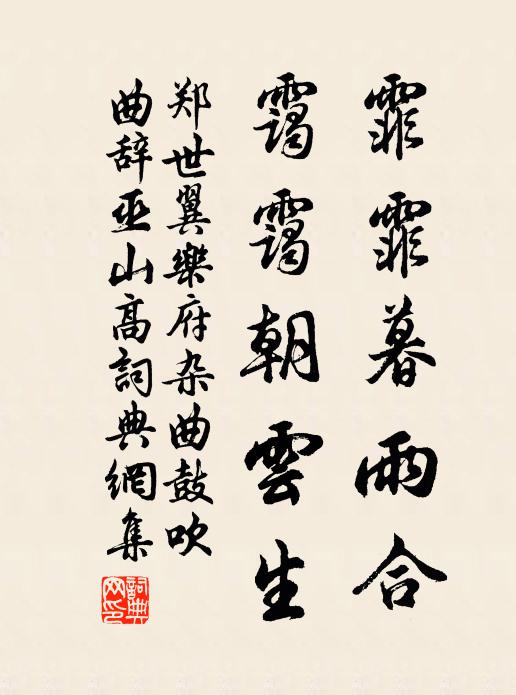 霏霏暮雨合
靄靄朝雲生
郑世翼樂府杂曲鼓吹
曲辞巫山高詞典網集
詞典网印